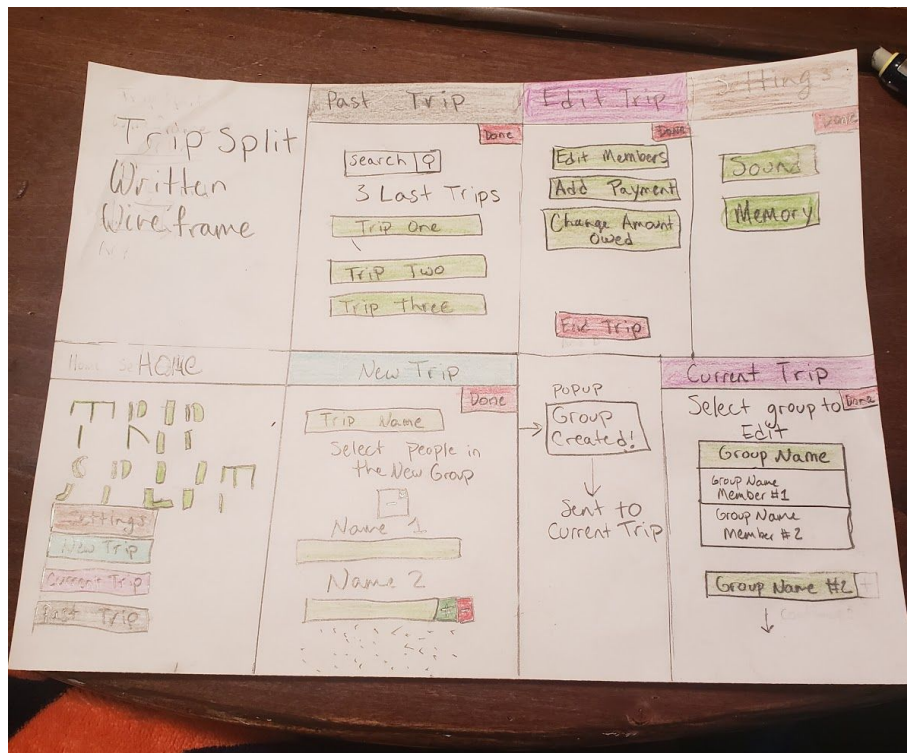 Trip Split
Written
Wireframe
Past Trip
Done
Search
3 Last Trips
Trip One
Trip Two
Trip Three
Edit Trip
Done
Edit Members
Add Payment
Change Amount
owed
End Trip
Settings
Done
Sound
Memory
HOME
TRIP
SPLIT
Settings
New Trip
Current Trip
Past Trip
New Trip
Done
Trip Name
Select people in
the New Group
Name 1
Name 2
+ -
POPUP
Group
Created!
Sent to
Current Trip
Current Trip
Done
Select group to
Edit
Group Name
Group Name
Member #1
Group Name
Member #2
Group Name #2 +